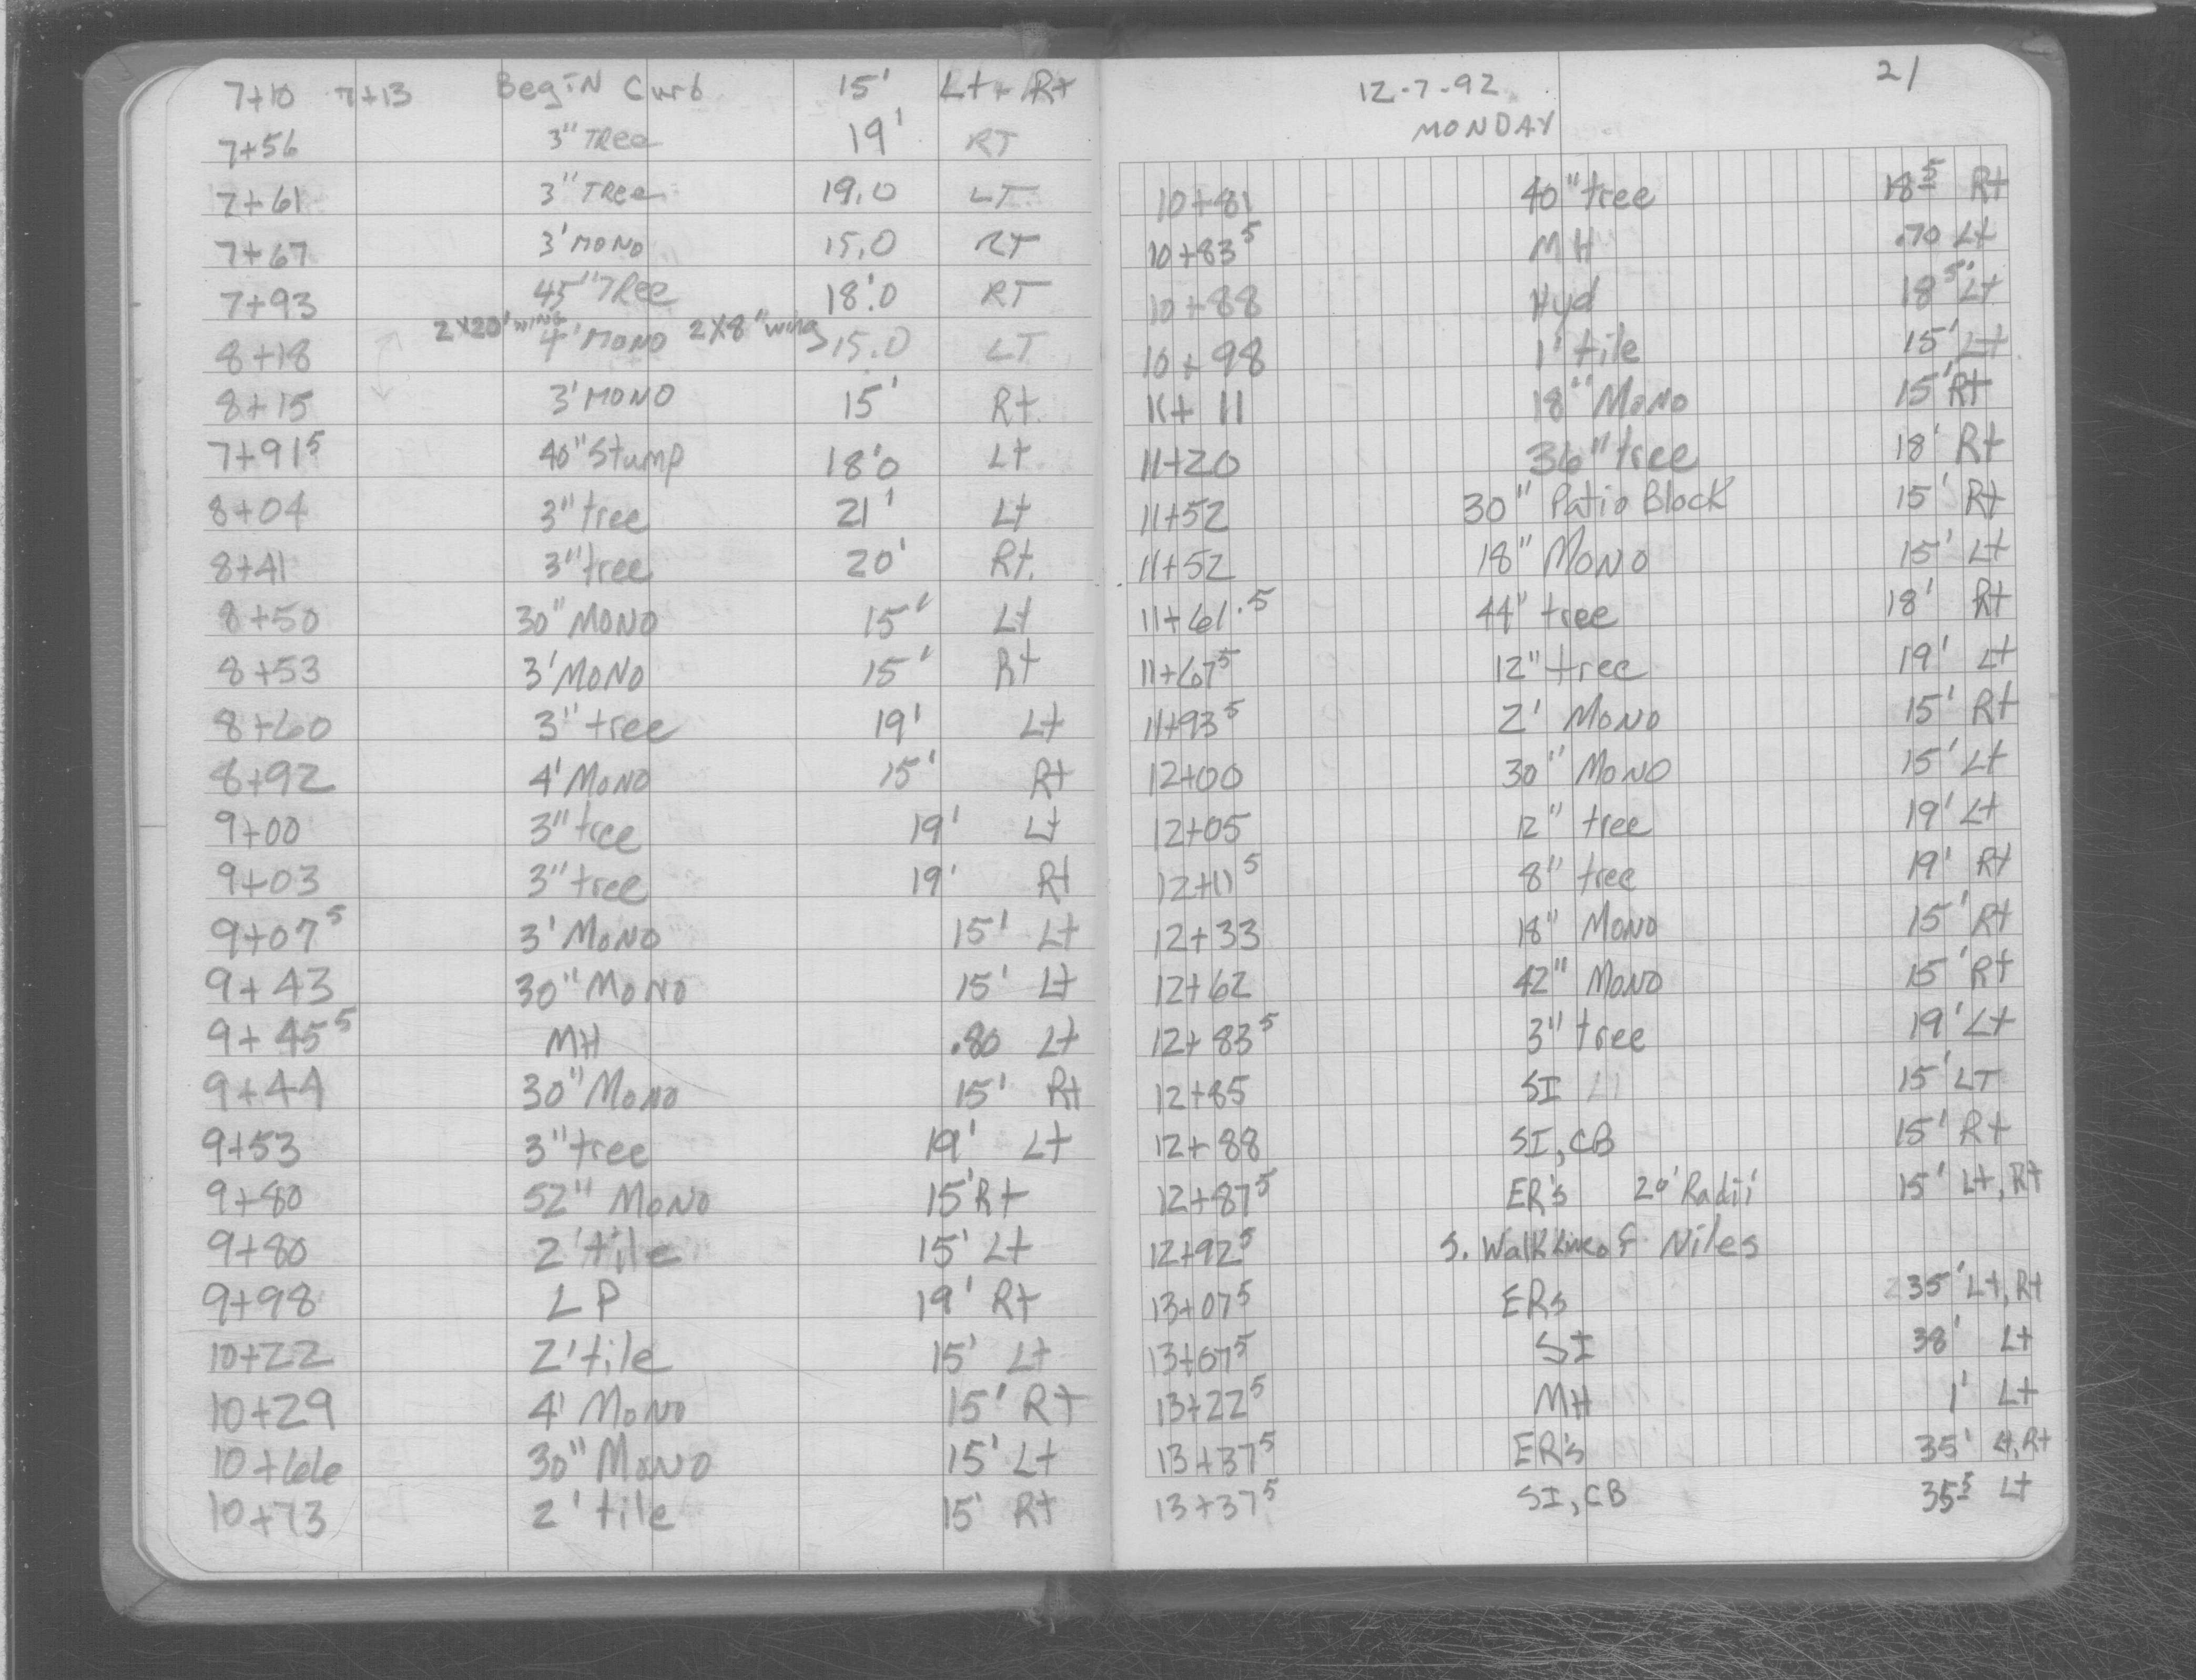 7+10 7+13 Begin Curb 15' Lt + Rt
7+56 3" TRee 19' RT
7+61 3" TRee 19.0 LT
7+67 3' MONO 15.0 RT
7+93 45" TRee 18'.0 RT
2x20' wing 2x8" wing
8+18 4' MONO 15.0 LT
8+15 3' MONO 15' Rt
7+91⁵ 40" Stump 18'0 Lt
8+04 3" tree 21' Lt
8+41 3" tree 20' Rt.
8+50 30" MONO 15' Lt
8+53 3' MONO 15' Rt
8+60 3" tree 19' Lt
8+92 4' MONO 15' Rt
9+00 3" tree 19' Lt
9+03 3" tree 19' Rt
9+07⁵ 3' MONO 15' Lt
9+43 30" MONO 15' Lt
9+45⁵ MH .80 Lt
9+44 30" MONO 15' Rt
9+53 3" tree 19' Lt
9+80 52" MONO 15' Rt
9+80 2' tile 15' Lt
9+98 LP 19' Rt
10+22 2' tile 15' Lt
10+29 4' MONO 15' Rt
10+66 30" MONO 15' Lt
10+73 2' tile 15' Rt
12-7-92 21
MONDAY
10+81 40" tree 18⁵ Rt
10+83⁵ MH .70 Lt
10+88 Hyd 18⁵' Lt
10+98 1' tile 15' Lt
11+11 18" MONO 15' Rt
11+20 36" tree 18' Rt
11+52 30" Patio Block 15' Rt
11+52 18" MONO 15' Lt
11+61.5 44" tree 18' Rt
11+67⁵ 12" tree 19' Lt
11+93⁵ 2' MONO 15' Rt
12+00 30" MONO 15' Lt
12+05 12" tree 19' Lt
12+11⁵ 8" tree 19' Rt
12+33 18" MONO 15' Rt
12+62 42" MONO 15' Rt
12+83⁵ 3" tree 19' Lt
12+85 SI 15' LT
12+88 SI, CB 15' Rt
12+87⁵ ER's 20' Radii 15' Lt, Rt
12+92⁵ S. Walk Line of Niles
13+07⁵ ERs 35' Lt, Rt
13+07⁵ SI 38' Lt
13+22⁵ MH 1' Lt
13+37⁵ ER's 35' Lt, Rt
13+37⁵ SI, CB 35⁵ Lt